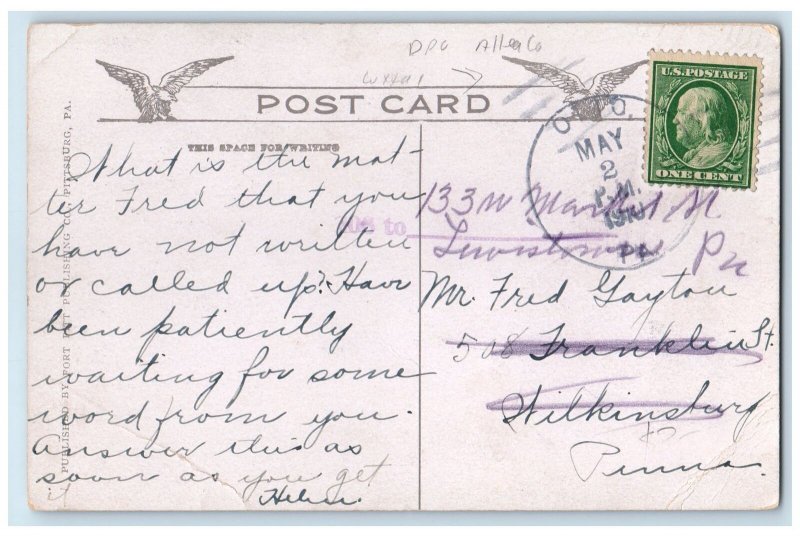 DPO Alleg Co
U.S. POSTAGE
ONE CENT
POST CARD
THIS SPACE FOR WRITING
MAY
2
P.M.
1910
PA.
What is the mat-
ter Fred that you
have not written
or called up? Have
been patiently
waiting for some
word from you.
Answer this as
soon as you get
it
Helen.
133 W Market St
Lewistown Pa
Mr. Fred Gayton
508 Franklin St.
Wilkinsburg
Penna.
PUBLISHED BY FORT PITT PUBLISHING CO., PITTSBURG, PA.